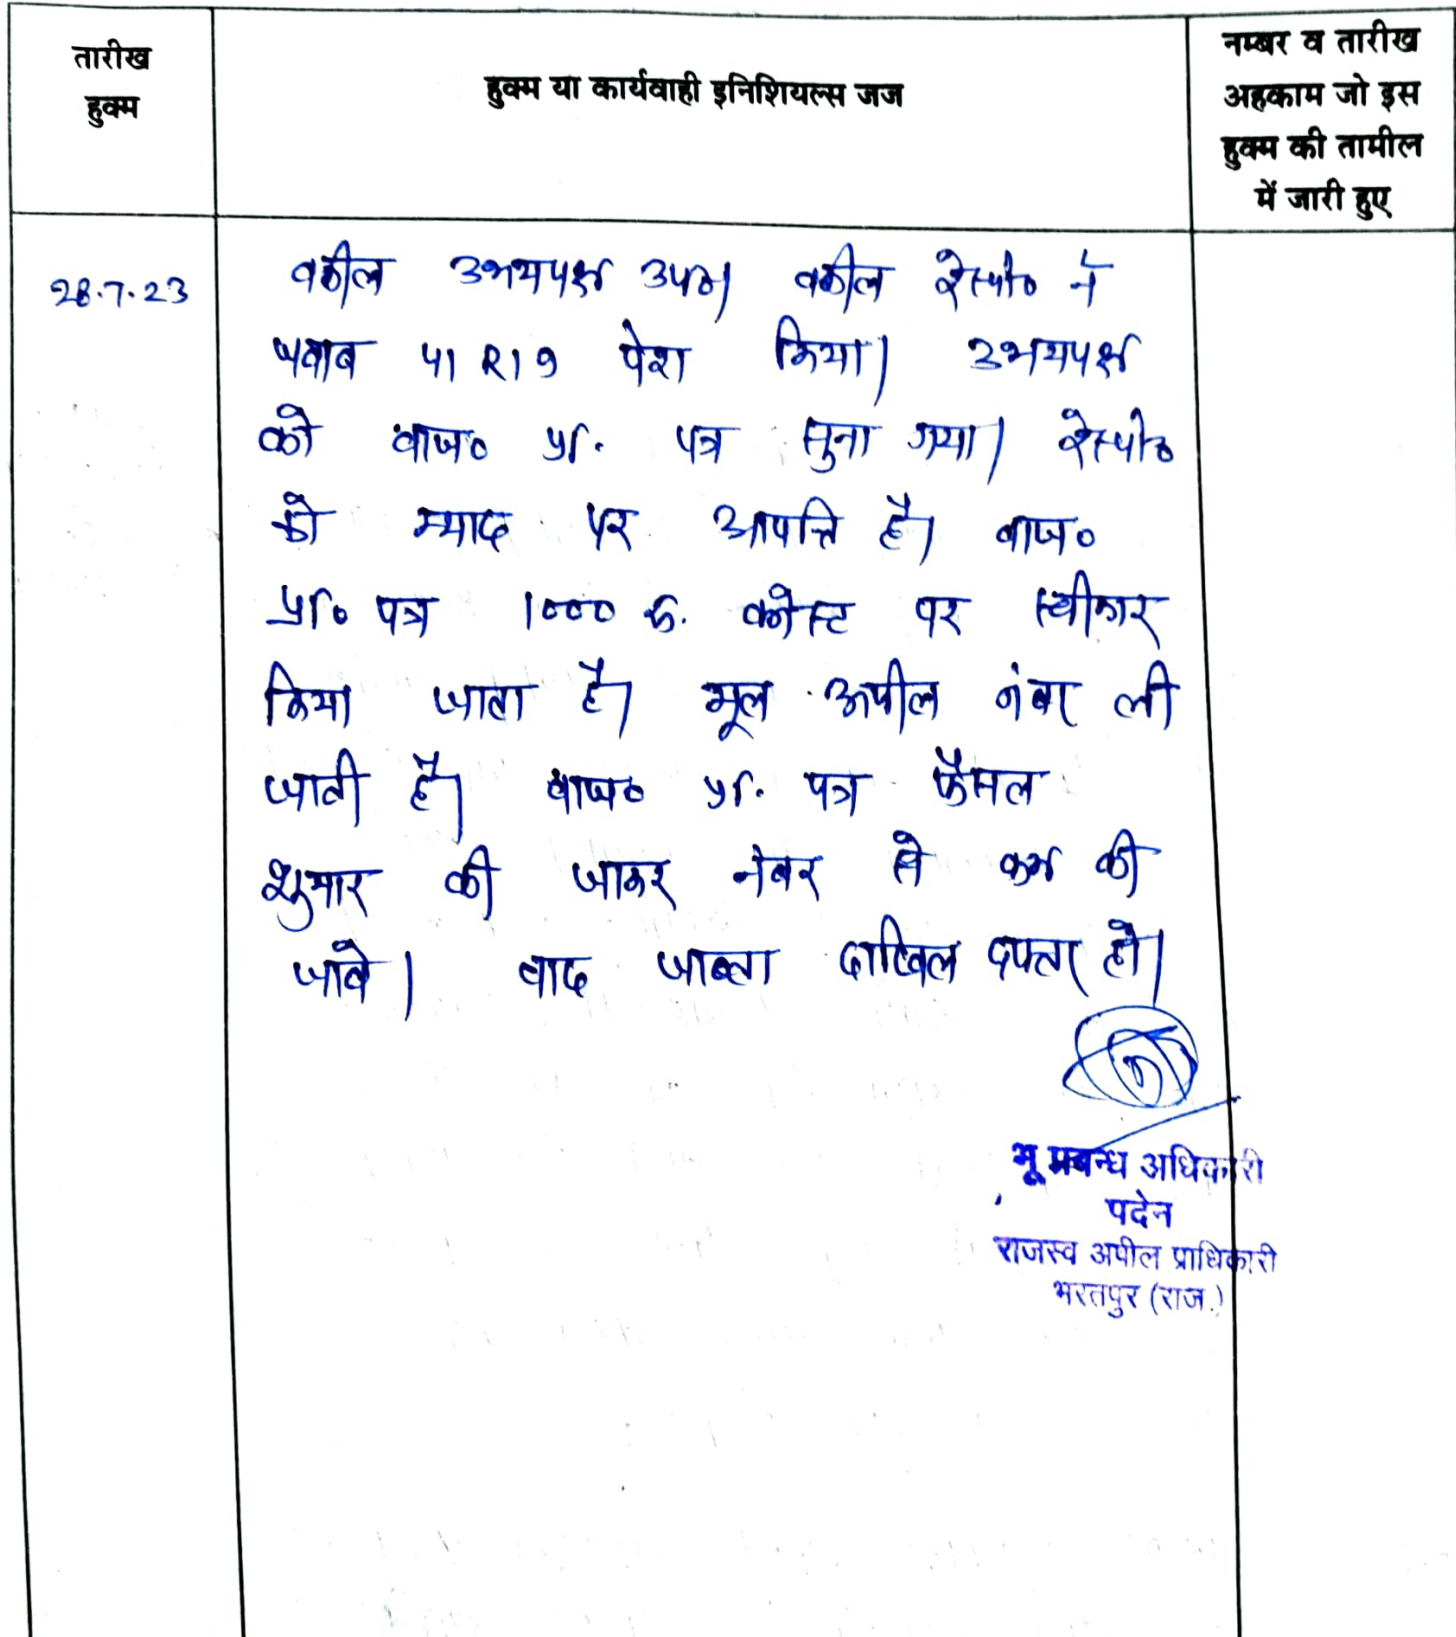 तारीख
हुक्म
हुक्म या कार्यवाही इनिशियल्स जज
नम्बर व तारीख
अहकाम जो इस
हुक्म की तामील
में जारी हुए
28.7.23
वकील उभयपक्ष उप०। वकील रेस्पो० ने
जवाब 41 R 19 पेश किया। उभयपक्ष
को बाज० प्रा. पत्र सुना गया। रेस्पो०
को म्याद पर आपत्ति है। बाज०
प्रा० पत्र 1000 रु. कोस्ट पर स्वीकार
किया जाता है। मूल अपील नंबर ली
जाती है। बाज० प्रा. पत्र फैसल
शुमार की जाकर नंबर से कम की
जावे। बाद जाब्ता दाखिल दफ्तर हो।
भू प्रबन्ध अधिकारी
पदेन
राजस्व अपील प्राधिकारी
भरतपुर (राज.)